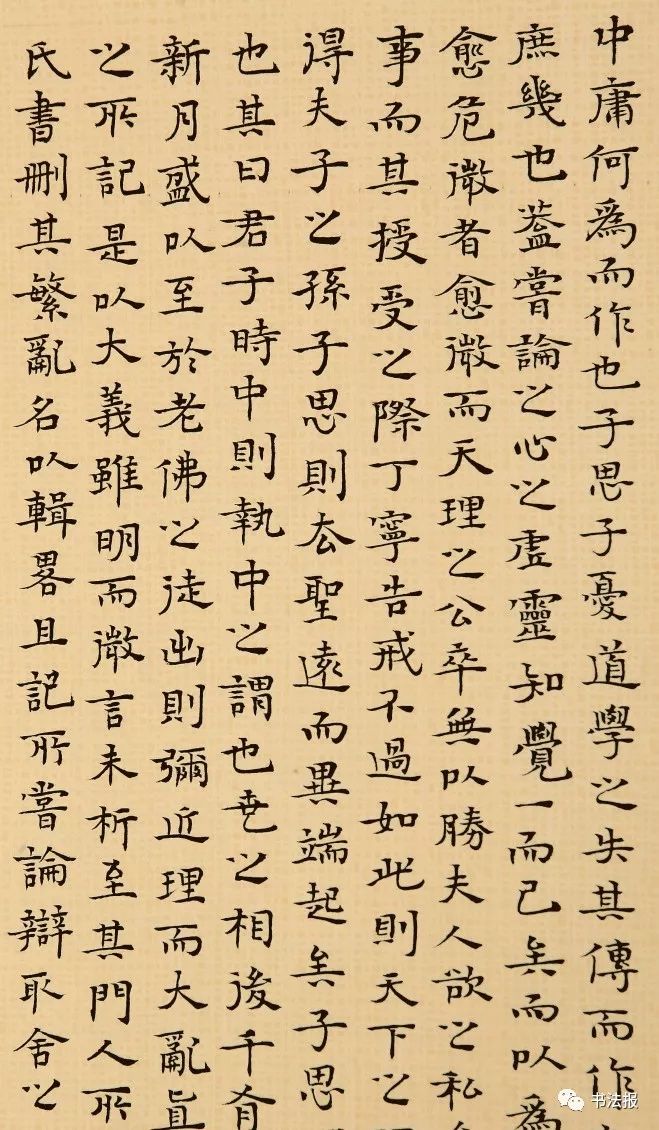 中庸何為而作也子思子憂道學之失其傳而作
庶幾也蓋嘗論之心之虛靈知覺一而已矣而以為
愈危微者愈微而天理之公卒無以勝夫人欲之私
事而其授受之際丁寧告戒不過如此則天下之
得夫子之孫子思則去聖遠而異端起矣子思
也其曰君子時中則執中之謂也世之相後千有
新月盛以至於老佛之徒出則彌近理而大亂真
之所記是以大義雖明而微言未析至其門人所
氏書刪其繁亂名以輯畧且記所嘗論辯取舍之
书法报